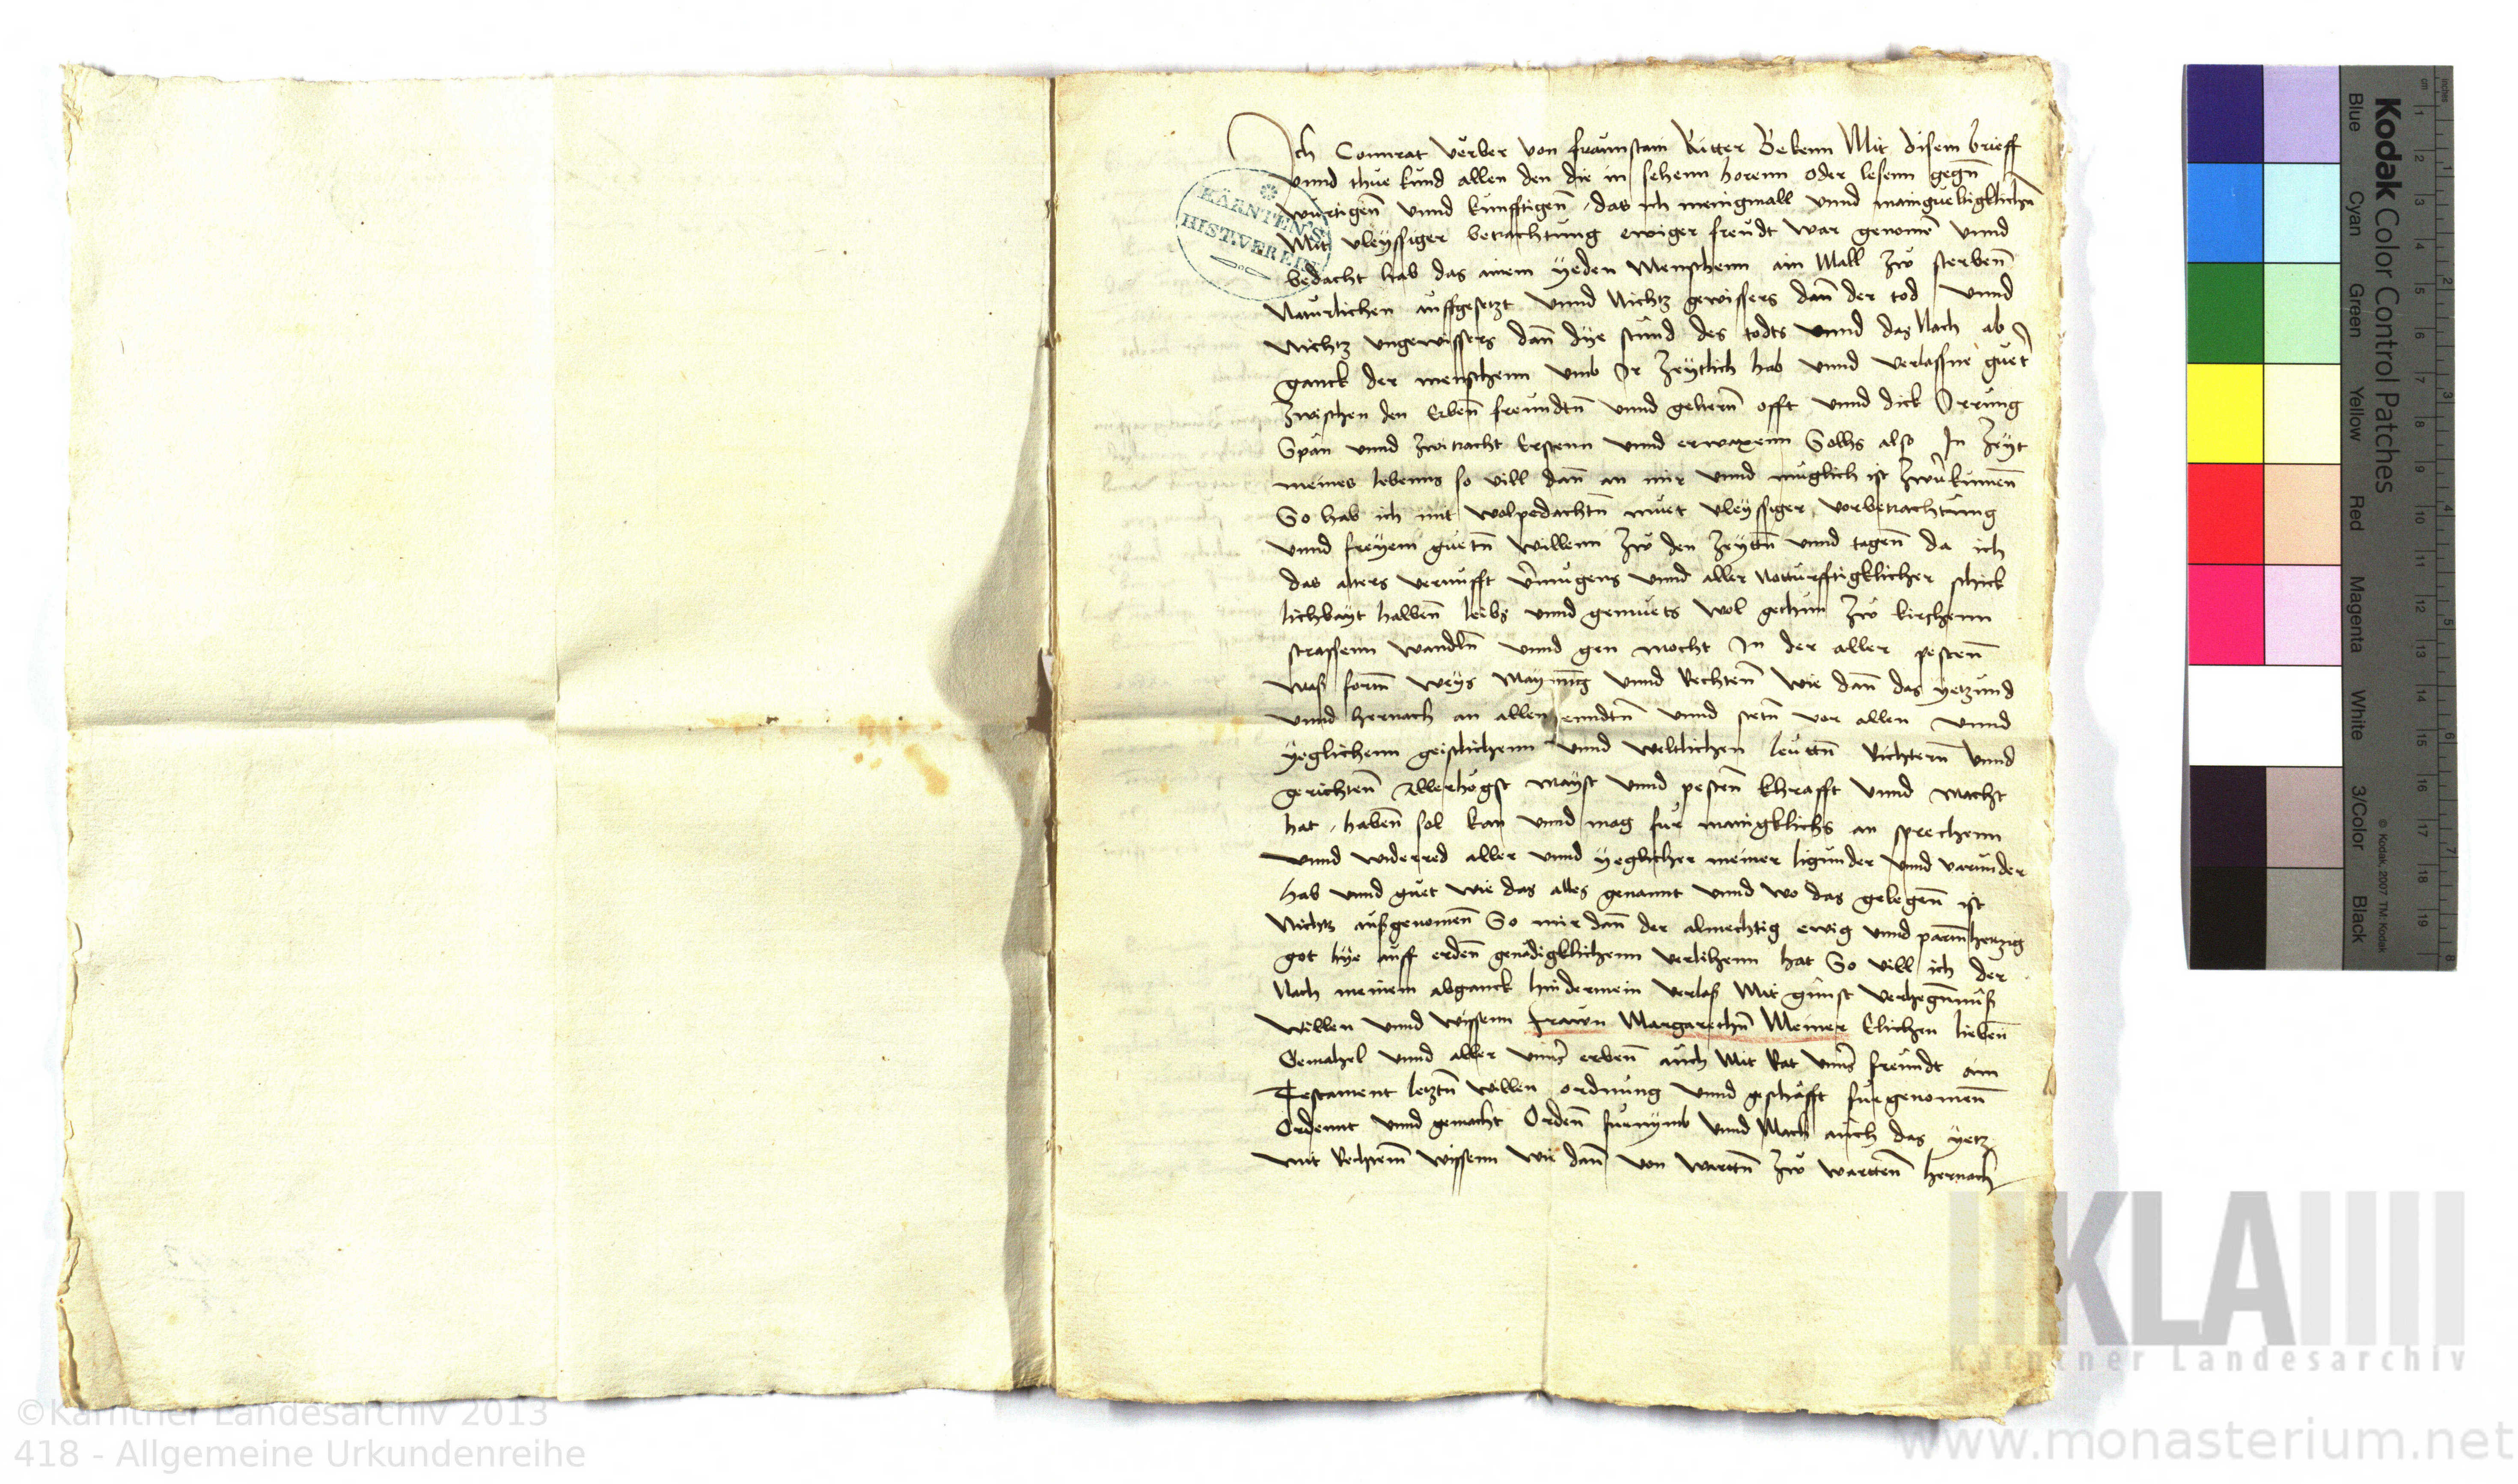 Ich Connrat verber von fraunstain Ritter Bekenn Mit disem brieff
vnnd thue kund allen den die in sehenn horenn oder lesenn gegn̄
wurtigen̄ vnnd kunfftigen̄, das ich menigmall vnnd maingueltigklichn̄
Mit vleyssiger betrachtung ewiger freudt war genomē vnnd
bedacht hab das ainem yeden Menschenn ain Mall zw sterben̄
Naturlichen auffgesetzt vnnd Nichtz gewissers dan̄ der tod vnnd
Nichtz vngewissers dan̄ dye stund des todts vnnd das Nach ab
ganck der menschenn vmb Ir zeytlich hab vnnd verlassne guet
zwischen den Erben̄ freundtn̄ vnnd geltern̄ offt vnnd dick Irrung
Span vnnd zwitracht Erstenn vnnd erwaxenn Solhs also In zeyt
meines lebenns so vill dan̄ an mir vnnd muglich ist zwukumen̄
So hab ich mit wolpedachtn̄ muet vleyssiger vorbetrachtung
vnnd freyem guetn̄ willenn zw den zeyttn̄ vnnd tagen̄ da ich
das alters vernufft vermugens vnnd aller Notturfftigklicher schick
lichkayt halben̄ leibs vnnd gemuets wol gethun zw kirchenn
strassenn wandln̄ vnnd gen mocht In der aller pesten̄
mass form̄ weys maynung vnnd Rechten̄ wie dan̄ das yetzund
vnnd hernach an allen enndtn̄ vnnd stetn̄ vor allen vnnd
yeglichenn geistlichenn vnnd weltlichen leuttn̄ Richtern̄ vnnd
gerichten̄ Allerhogst mayst vnnd pesten̄ khrafft vnnd macht
hat, haben̄ sol kan vnnd mag fur maingklichs an sprechenn
vnnd widerred aller vnnd yeglicher meiner ligunder vnnd varunder
hab vnnd guet wie das alles genannt vnnd wo das gelegen̄ ist
Nichts aussgenomen̄ So mir dan̄ der almechtig ewig vnnd parm̄hertzig
got hye auff erden̄ genadigklichenn verlihenn hat So vill ich der
Nach meinem abganck hindermein verlass Mit gunst verhegnnuss
willen vnnd wissenn frawn Margarethn̄ Meiner Elichen lieben̄
Gemahel vnnd aller vnnser erben̄ auch Mit Rat vnnser freundt ain
Testament letztn̄ willen ordnung vnnd geschafft furgenomen̄
Ordennt vnnd gemacht Orden̄ furnymb vnnd Mach auch das yetz
mit Rechtem̄ wissenn wie dan̄ von worttn̄ zw wortten̄ hernach
KÄRNTEN'S
HIST. VEREIN
Kodak Color Control Patches
© Kodak, 2007 TM: Kodak
Blue Cyan Green Yellow Red Magenta White 3/Color Black
cm 1 2 3 4 5 6 7 8 9 10 11 12 13 14 15 16 17 18 19
inches 1 2 3 4 5 6 7 8
KLA
Kärntner Landesarchiv
©Kärntner Landesarchiv 2013
418 - Allgemeine Urkundenreihe
www.monasterium.net